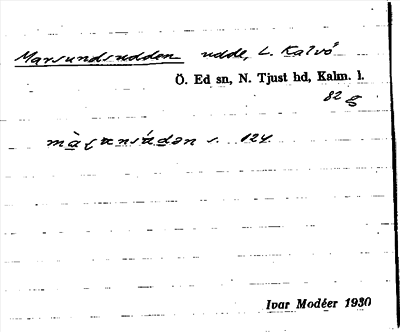 Marsundsudden udde, L. Kalvö
Ö. Ed sn, N. Tjust hd, Kalm. l.
82 g
s. 124.
Ivar Modéer 1930